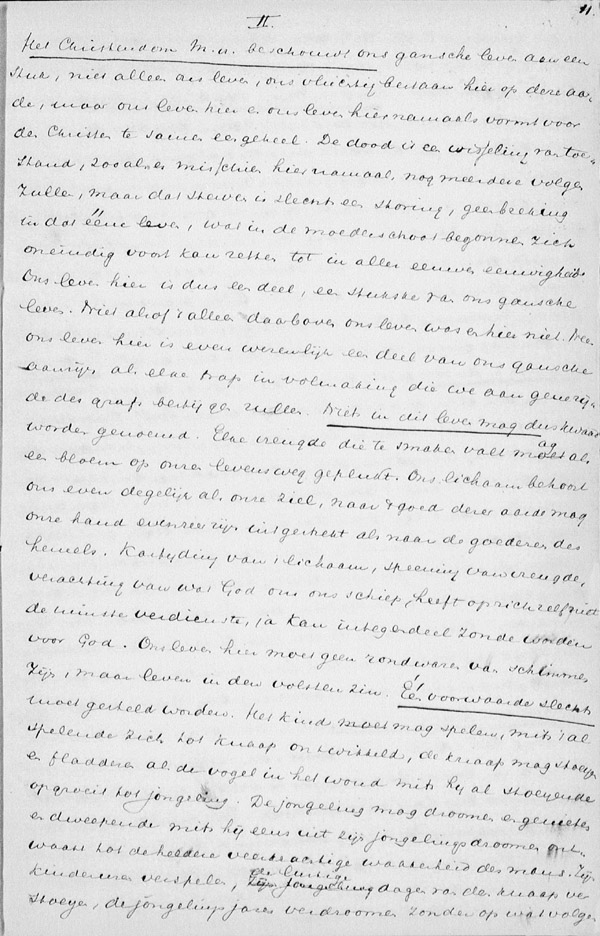 II.
11.
Het Christendom m.a. beschouwt ons gansche leven aan een
stuk, niet alleen ons leven, ons vluchtig bestaan hier op deze aar-
de, maar ons leven hier en ons leven hiernamaals vormt voor
den Christen te samen een geheel. De dood is een wisseling van toe-
stand, zooals er misschien hiernamaals nog meerdere volgen
zullen, maar dat sterven is slechts een storing, geen breking
in dat ééne leven, wat in de moederschoot begonnen zich
oneindig voort kan zetten tot in aller eeuwen eeuwigheid.
Ons leven hier is dus een deel, een stukske van ons gansche
leven. Niet alsof 't alleen daarboven ons leven was en hier niet. Neen
ons leven hier is even wezenlijk een deel van ons gansche
aanzijn als elke trap in volmaking die we aan gene zij-
de des grafs bestijgen zullen. Niets in dit leven mag dus kwaad
worden genoemd. Elke vreugde die te smaken valt mag als
een bloem op onzen levensweg geplukt. Ons lichaam behoort
ons even degelijk als onze ziel, naar 't goed dezer aarde mag
onze hand evenzeer zijn uitgestrekt als naar de goederen des
hemels. Kastijding van 't lichaam, spening van vreugde,
verachting van wat God om ons schiep, heeft op zich zelf niet
de minste verdienste, ja kan integendeel zonde worden
voor God. Ons leven hier moet geen rondwaren van schimmen
zijn, maar leven in den volsten zin. Één voorwaarde slechts
moet gesteld worden. Het kind moet mag spelen, mits 't al
spelende zich tot knaap ontwikkeld, de knaap mag stoeijen
en fladderen als de vogel in het woud mits hij al stoeyende
opgroeit tot jongeling. De jongeling mag droomen en genieten
en dweepende mits hij eens uit zijn jongelingsdroomen ont-
waakt tot de heldere veerkrachtige waakzaamheid des mans. Zijn
kinderuren verspelen, de lustige dagen van den knaap ver
stoeyen, de jongelingsjaren verdroomen zonder op wat volgen